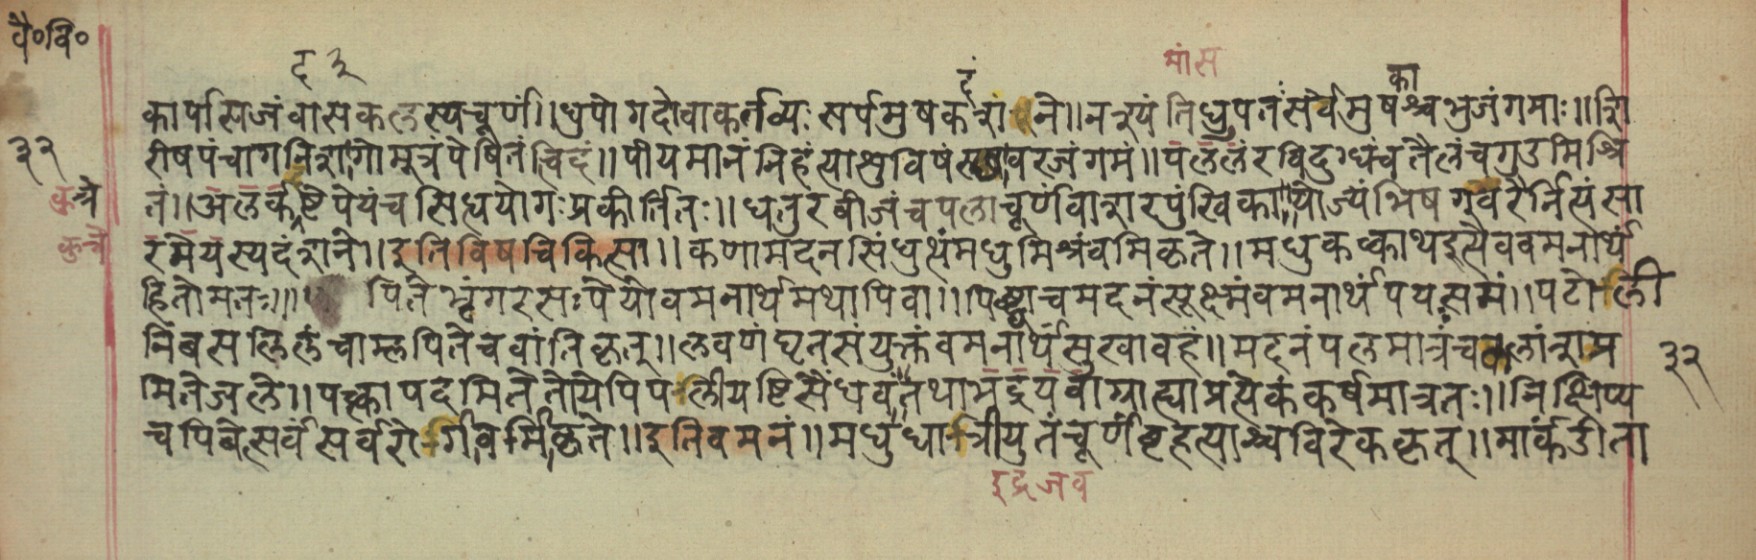 वै॰वि॰
द ३
दं
मांस
का
कार्पासिजं वा सकलस्य चूर्णं।। धुपो गदो वा कर्तव्यः सर्पमुषकनाशने।। नश्यंति धुपतः सर्वे मुषश्च भुजंगमाः।। शि
रीषपंचागनिशागोमूत्रं पेषितं त्विदं।। पीयमानं निहंत्याशु विषं स्थावरजंगमं।। पललं रविदुग्धं च तैलं च गुडमिश्रि
३२
तं।। अलर्कष्टे पेयं च सिध्ययोगः प्रकीर्तितः।। धतुरबीजं च पला चूर्णं वा शारपुंखिका।। योज्यं भिषग्वरैर्नित्यं सा
रमेयस्य दंशने।। इति विषचिकित्सा।। कणामदनसिंधुत्थं मधुमिश्रं वमिकृते।। मधुकक्वाथ इत्येव वमनार्थं
हितो मतः।। पिते भृंगरसः पेयो वमनार्थमथापि वा।। पिष्ट्वा च मदनं सूक्ष्मं वमनार्थं पयःसमं।। पटोली
निंबसलिलं चाम्लपिते च वांतिकृत्।। लवणं घृतसंयुक्तं वमनार्थं सुखावहं।। मदनं पलमात्रं च
३२
मिते जले।। पक्त्वा पदमिते तोये पिपलीयष्टिसैंधवं तथा प्रत्येकं कर्षमात्रतः।। निक्षिप्य
च पिबेत्सर्वं सर्वरोगी वमिकृते।। इति वमनं।। मधुधात्रीयुतं चूर्णं बृहत्याश्च विरेककृत्।। मार्कंडीता
इद्रजव